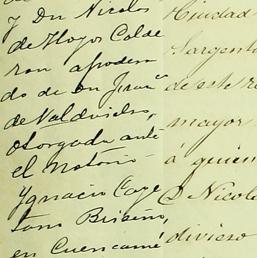 y Dn Nicolas
de Hoyos Calde
ron apodera
do de Dn Juan
de Valdivielso,
otorgada ante
el Notorio
Ygnacio Caye
tano Briseno,
en Cuencamé
Ciudad
Sargento
de este re
mayor
á quien
D Nicol
diviero